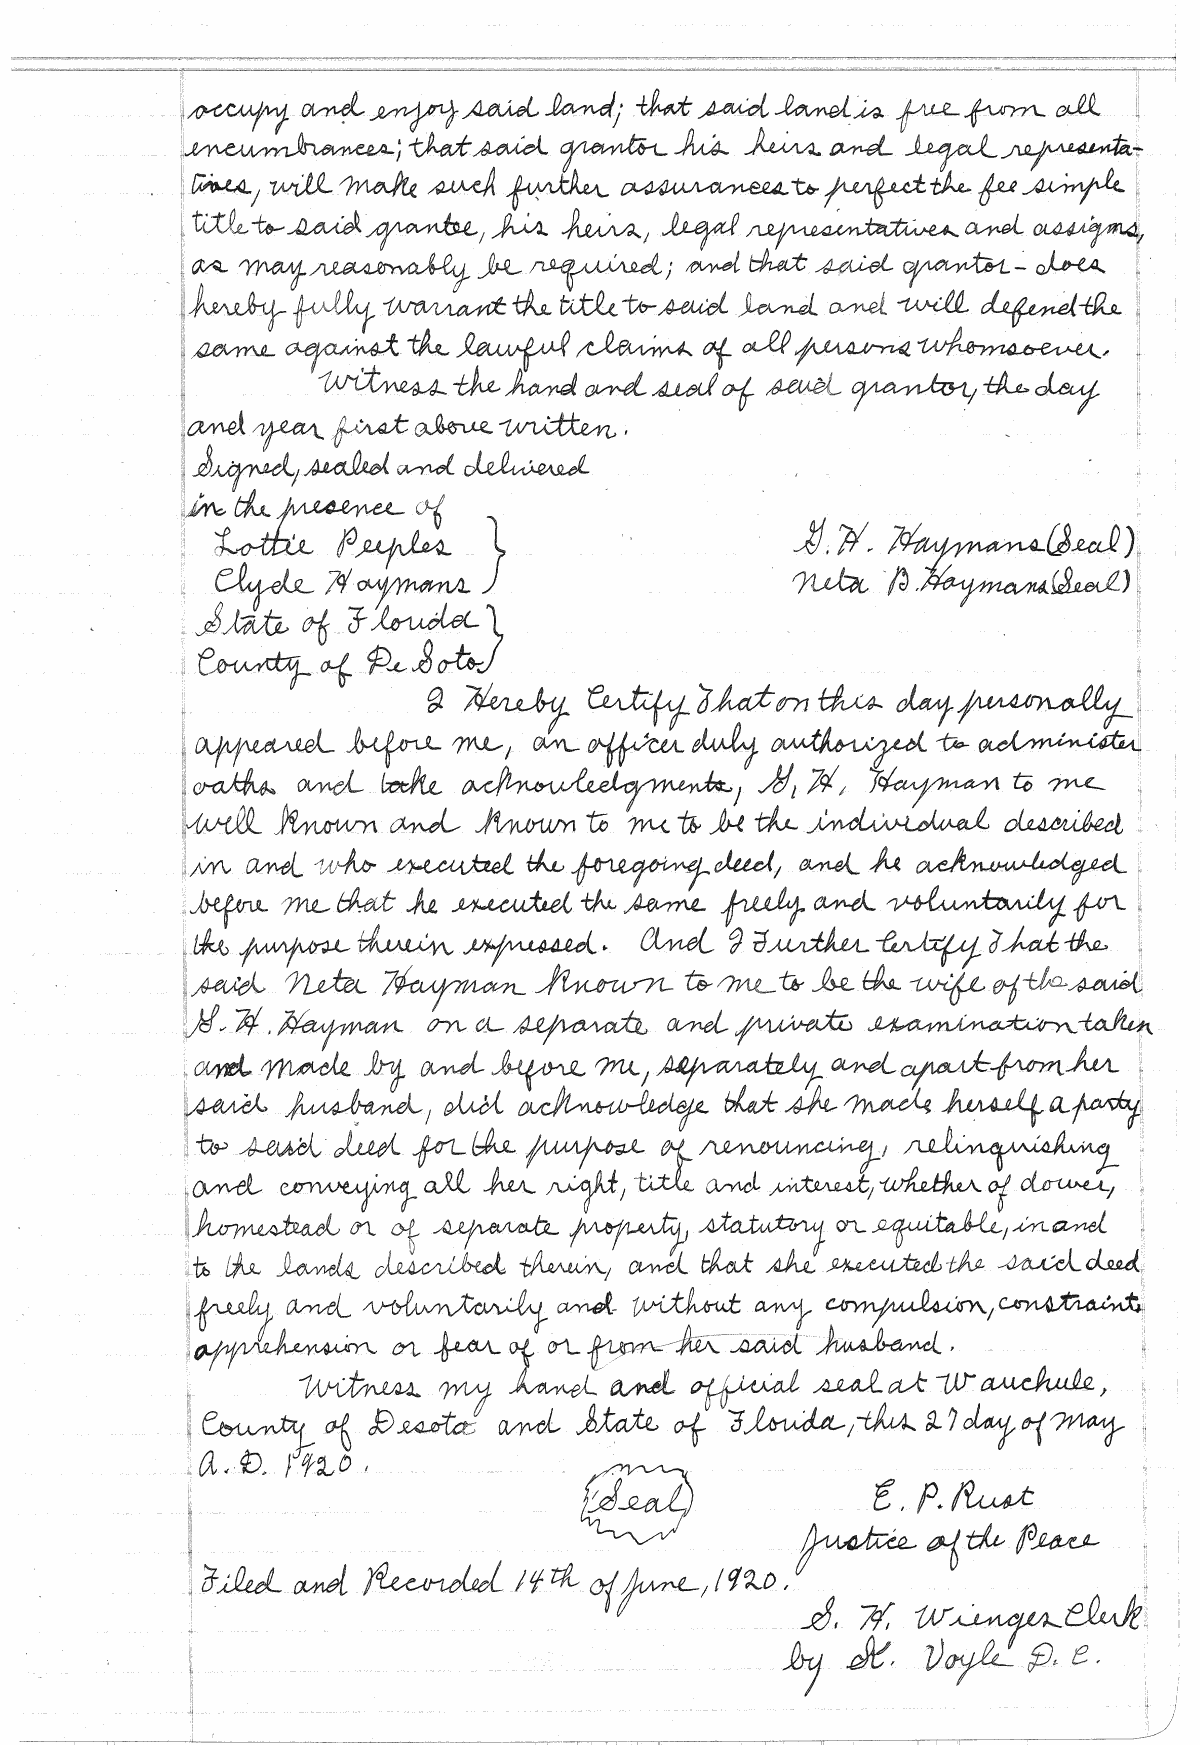 occupy and enjoy said land; that said land is free from all
encumbrances; that said grantor his heirs and legal representa-
tives, will make such further assurances to perfect the fee simple
title to said grantee, his heirs, legal representatives and assigns,
as may reasonably be required; and that said grantor - does
hereby fully warrant the title to said land and will defend the
same against the lawful claims of all persons whomsoever.
Witness the hand and seal of said grantor, the day
and year first above written.
Signed, sealed and delivered
in the presence of
Lottie Peeples
Clyde Haymans
G. H. Haymans (Seal)
Neta B. Haymans (Seal)
State of Florida
County of De Soto
I Hereby Certify That on this day personally
appeared before me, an officer duly authorized to administer
oaths and take acknowledgments, G. H. Hayman to me
well known and known to me to be the individual described
in and who executed the foregoing deed, and he acknowledged
before me that he executed the same freely and voluntarily for
the purpose therein expressed. And I Further Certify That the
said Neta Hayman known to me to be the wife of the said
G. H. Hayman on a separate and private examination taken
and made by and before me, separately and apart from her
said husband, did acknowledge that she made herself a party
to said deed for the purpose of renouncing, relinquishing
and conveying all her right, title and interest, whether of dower,
homestead or of separate property, statutory or equitable, in and
to the lands described therein, and that she executed the said deed
freely and voluntarily and without any compulsion, constraint,
apprehension or fear of or from her said husband.
Witness my hand and official seal at Wauchule,
County of Desota and State of Florida, this 27 day of May
A. D. 1920.
(Seal)
E. P. Rust
Justice of the Peace
Filed and Recorded 14th of June, 1920.
S. H. Wienges Clerk
by H. Voyle D. C.